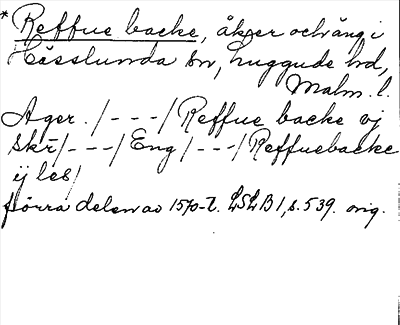 * Reffue backe, åker och äng i
Hässlunda sn, Luggude hd,
Malm. l.
Ager. /---/ Reffue backe vj
skr/---/ Eng /---/ Reffuebacke
ij les/
förra delen av 1570-t. LSLB 1, s. 539. orig.